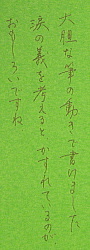 大胆な筆の動きで書けました
涙の義を考えるとかすれているのが
おもしろいですね